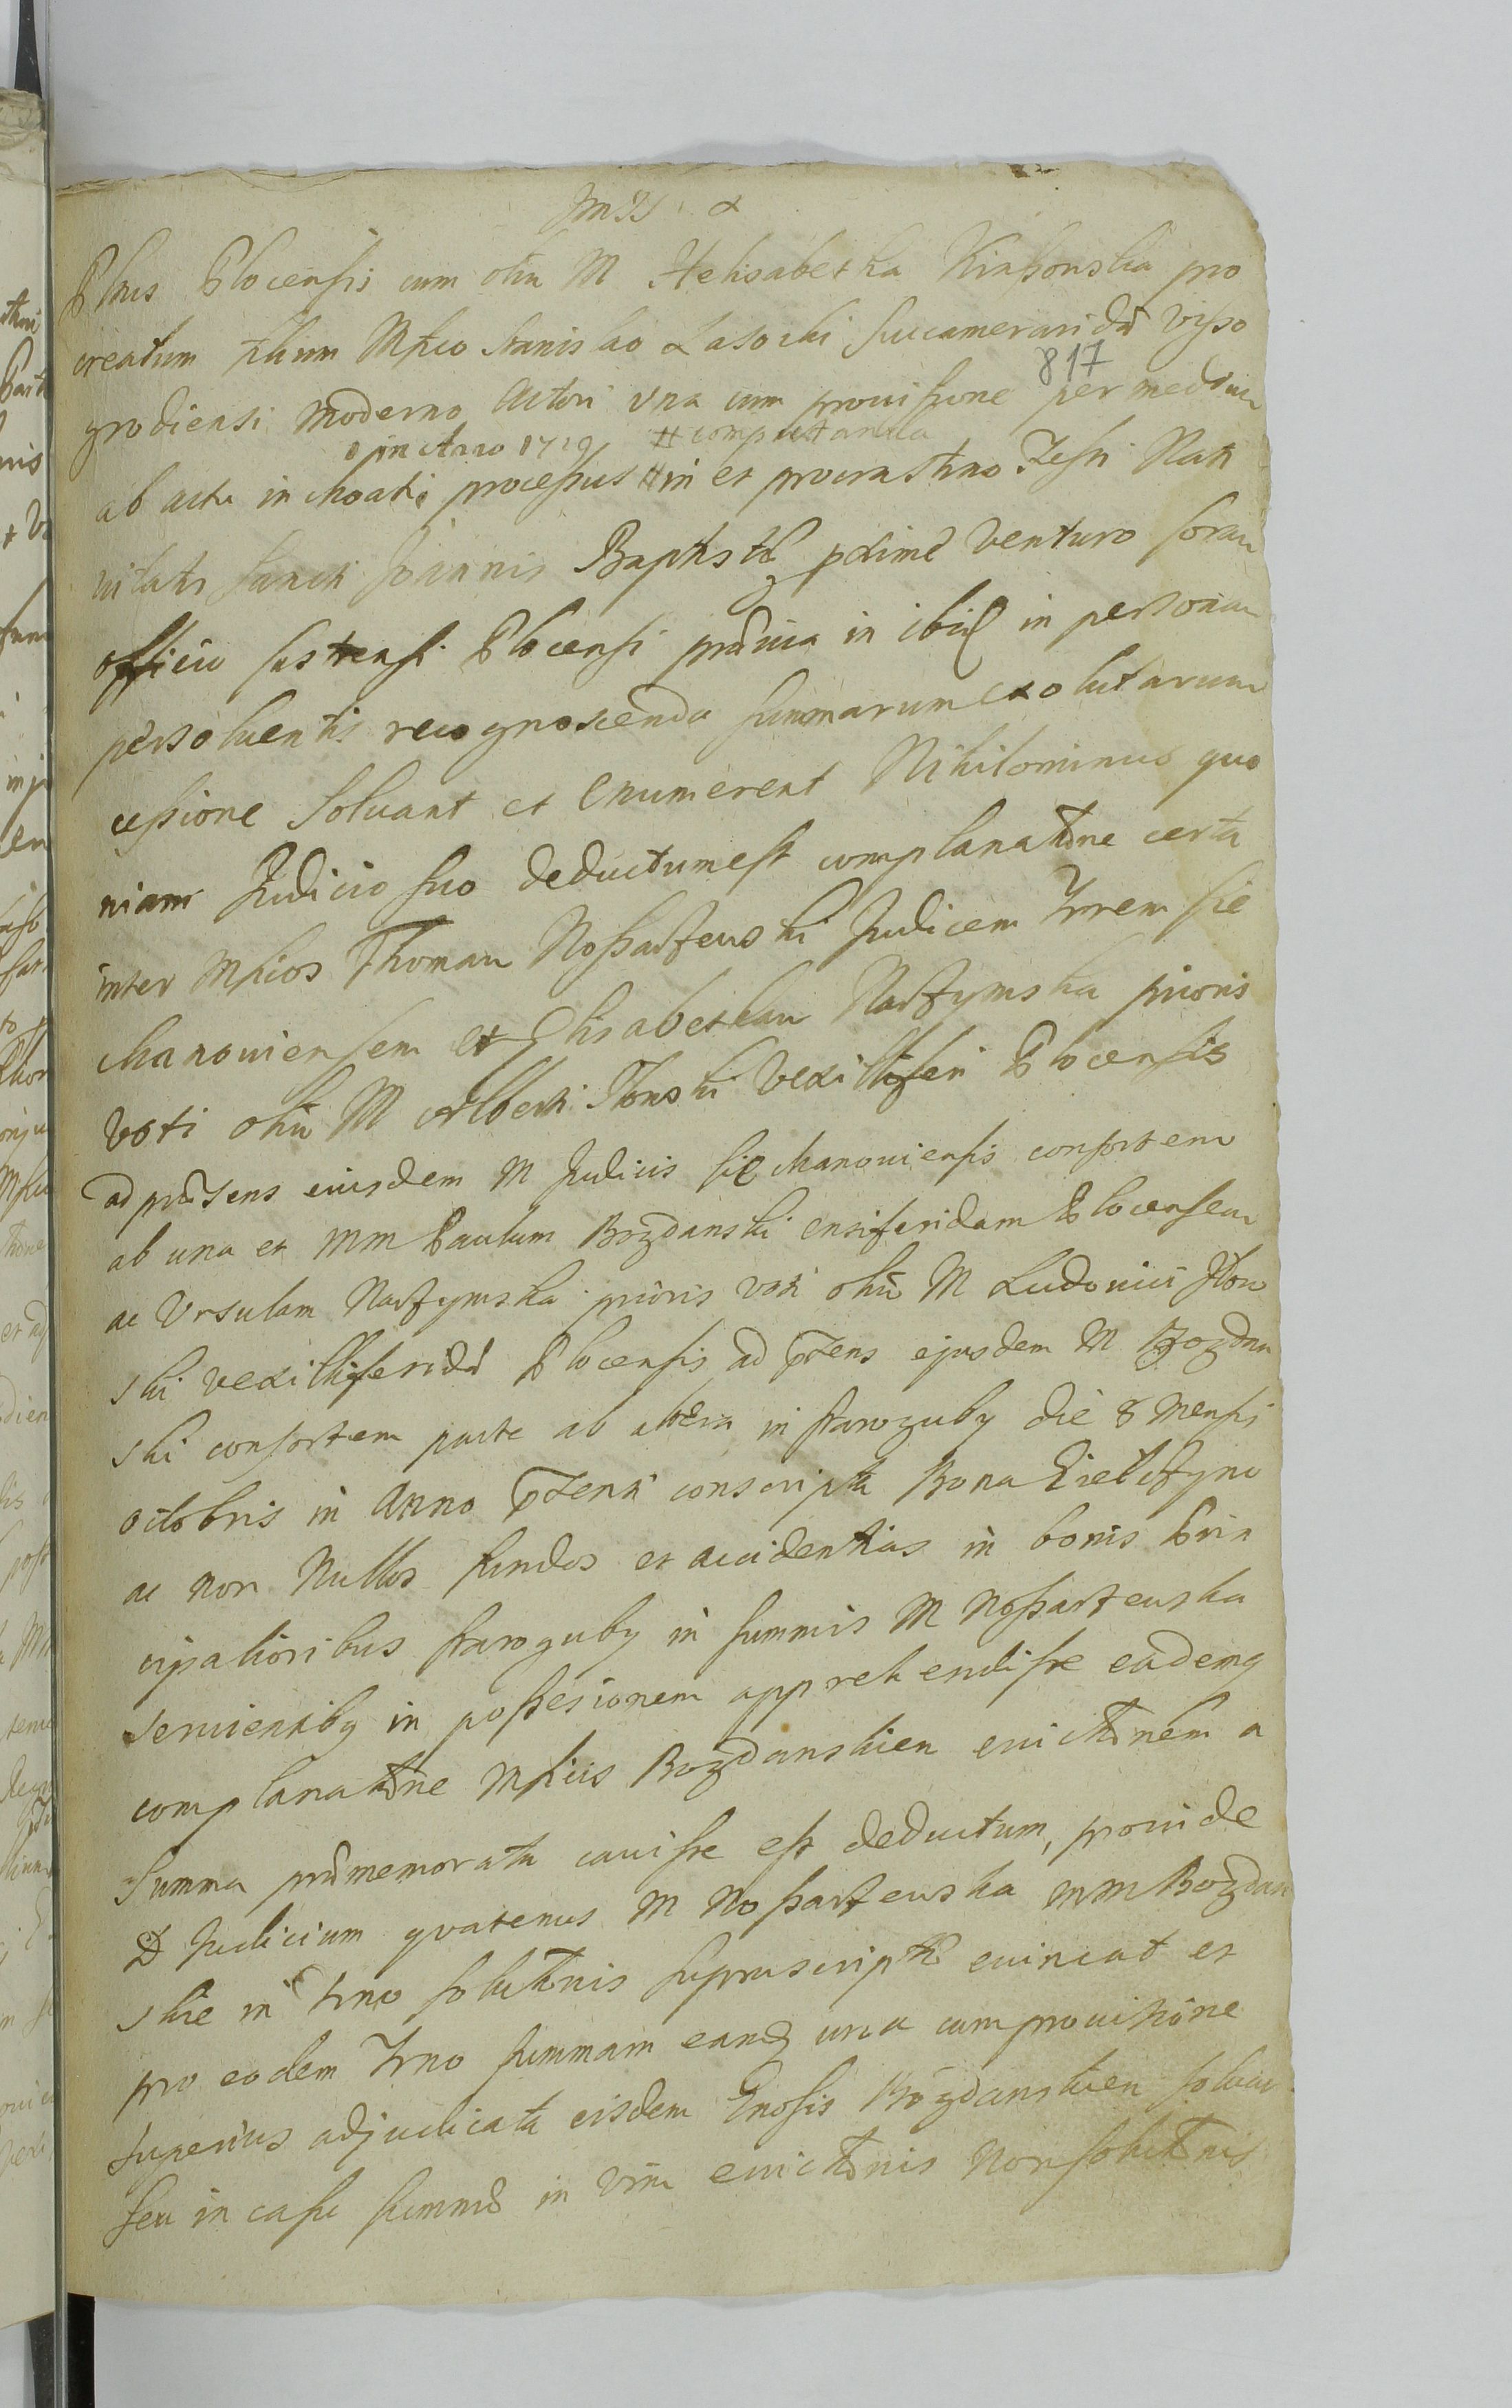 Plnis Plocensis cum olim M Helisabetha Kirskonska pro
creatum filium Mfico Stanislao Lasocki succameraridæ Visso
817
grodiensi moderno Actori una cum prouisione per medium
in Anno 1719 # computanda
ab actu inchoati processus # in et procrastino Festi Nati
uitatis Sancti Joannis Baptistæ proxime venturo coram
officio castrensi Plocensi præuia in ibid in personam
persoluentis recognoscenda summarum exolutarum
cessione soluant et enumerent Nihilominus quo
niam Judicio suo deductum est complanatione certa
inter Mficos Thomam Noskarzewski Judicem Trrem Cie
chanouiensem et Elisabetham Narzymska prioris
voti olim M Alberti Ilonski Vexilliferi Plocensis
ad præsens eiusdem M Judicis Ciechanouiensis consortem
ab una et MM Paulum Bogdanski ensiferidam Plocensem
ac Vrsulam Narzymska prioris voti olim M Ludouici Ilon
ski vexilliferidæ Plocensis ad præns ejusdem M Bogdan
ski consortem parte ab altera in Starozuby die 8 Mensis
octobris in Anno prænti conscripta Bona
ac non Nullos fundos et accidentias in bonis prin
cipalioribus Starozuby in summis M Noskarzewska
seruientibus in possesionem apprehendisse eademq
complanatione Mficis Bogdanskien euictionem a
summa præmemorata cauisse est deductum, prouide
Judicium quatenus M Noskarzewska MM Bogdan
skie in trno solutionis suprascriptæ euincat et
pro eodem Trno summam eandem una cum prouisione
superius adjudicata eisdem Gnosis Bogdanskien soluat
seu in casu summæ in vim euictionis Non solutionis